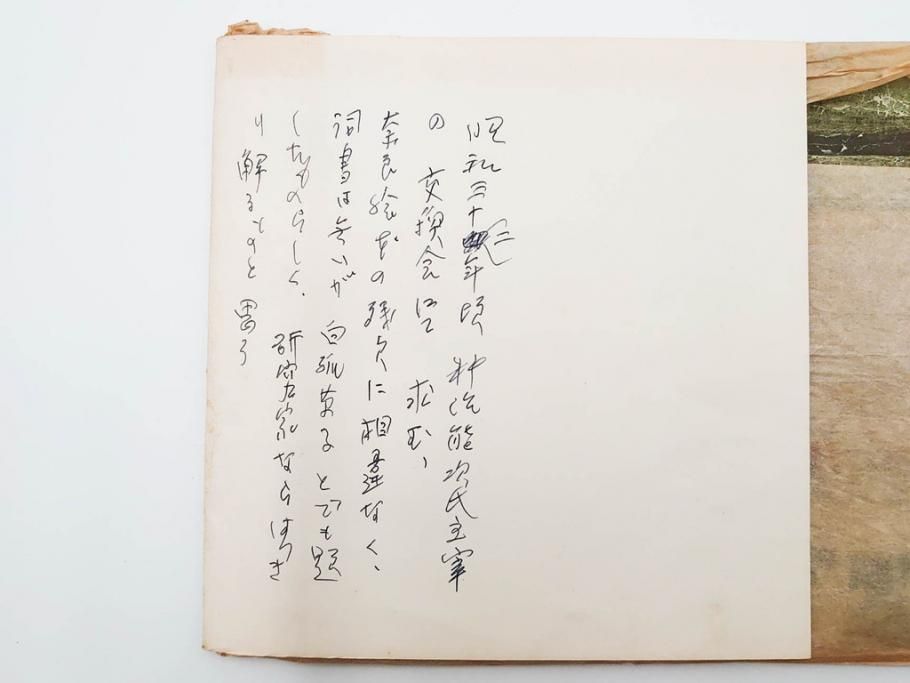 昭和三十二年頃 神保能次氏主宰
の 交換会にて 求む、
奈良絵本の残欠に相違なく、
詞書は無いが 白狐草子とでも題
したものらしく、 研究家ならはっき
り解るものと 思う